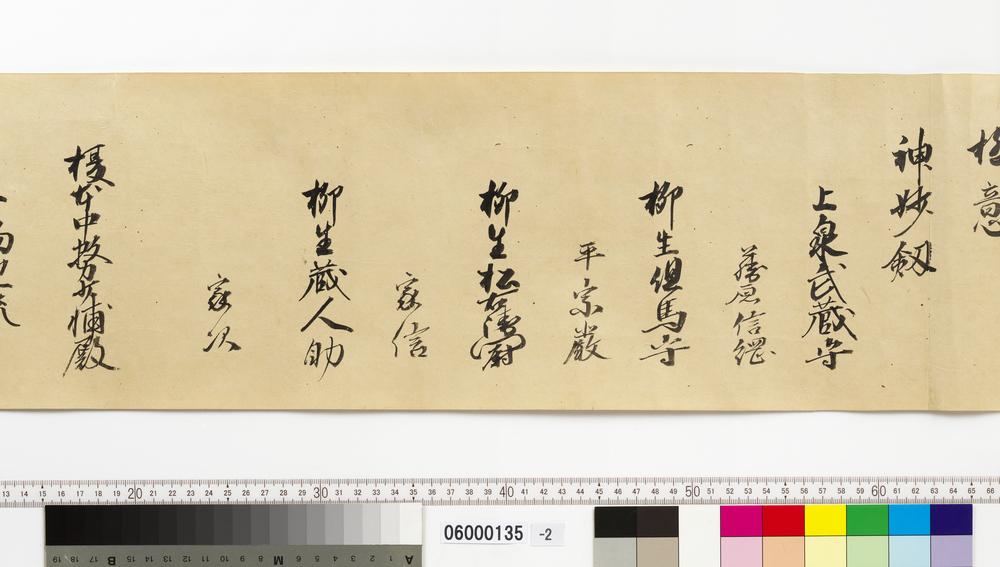 極意
神妙剱
上泉武蔵守
藤原信綱
柳生但馬守
平宗厳
柳生松右衛門
家信
柳生蔵人助
家次
榎本中務少輔殿
13 14 15 16 17 18 19 20 21 22 23 24 25 26 27 28 29 30 31 32 33 34 35 36 37 38 39 40 41 42 43 44 45 46 47 48 49 50 51 52 53 54 55 56 57 58 59 60 61 62 63 64 65 66
06000135 -2
19 18 17 B 15 14 13 12 11 10 9 8 M 6 5 4 3 2 1 A